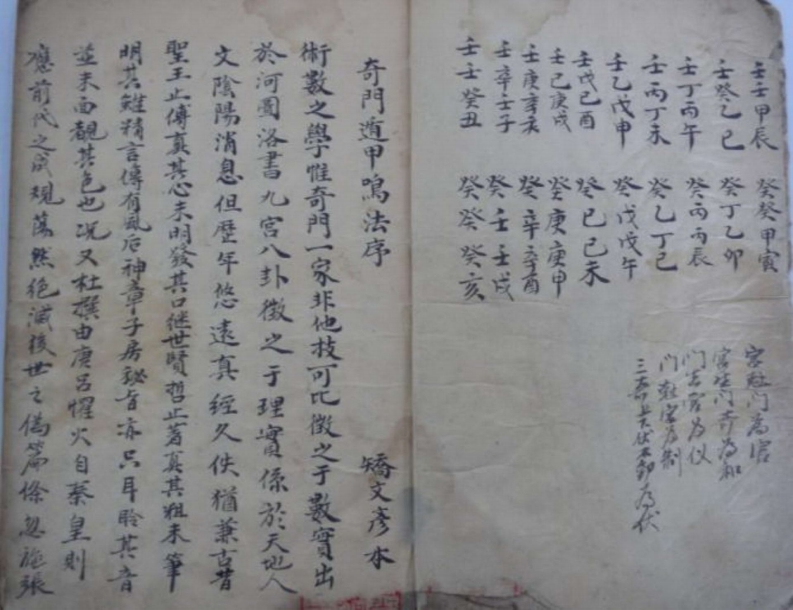 壬壬甲辰 癸癸甲寅
壬癸乙巳 癸丁乙卯
壬丁丙午 癸丙丙辰
壬丙丁未 癸乙丁巳
壬乙戊申 癸戊戊午
壬戊己酉 癸己己未
壬己庚戌 癸庚庚申
壬庚辛亥 癸辛辛酉
壬辛壬子 癸壬壬戌
壬壬癸丑 癸癸癸亥
宮 门為宮
宮生门 為和
门 宮為仪
门 宮為制
三 為伏
奇門遁甲鳴法序 矯文彥本
術數之學惟奇門一家非他技可比徵之于數實出
於河圖洛書九宮八卦徵之于理實係於天地人
文陰陽消息但歷年悠遠真經久佚猶兼古昔
聖王止傳真其心未明發其口继世賢哲止著真其粗未筆
明其 精言傳有風后神章子房秘旨亦只耳聆其音
並未面覩其色也况又杜撰由庚吕懼火自蔡皇則
應前代之成规蕩然绝滅後世之偽篇條忽施張